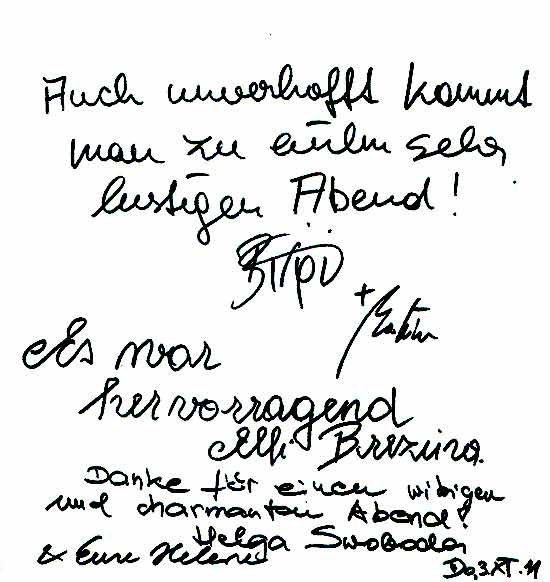 Auch unverhofft kommt
man zu einem sehr
lustigen Abend!
+
Es war
hervorragend
Elfi Brezina.
Danke für einen witzigen
und charmanten Abend!
Helga Swoboda
& Eure Helene
Do, 3.XI.11